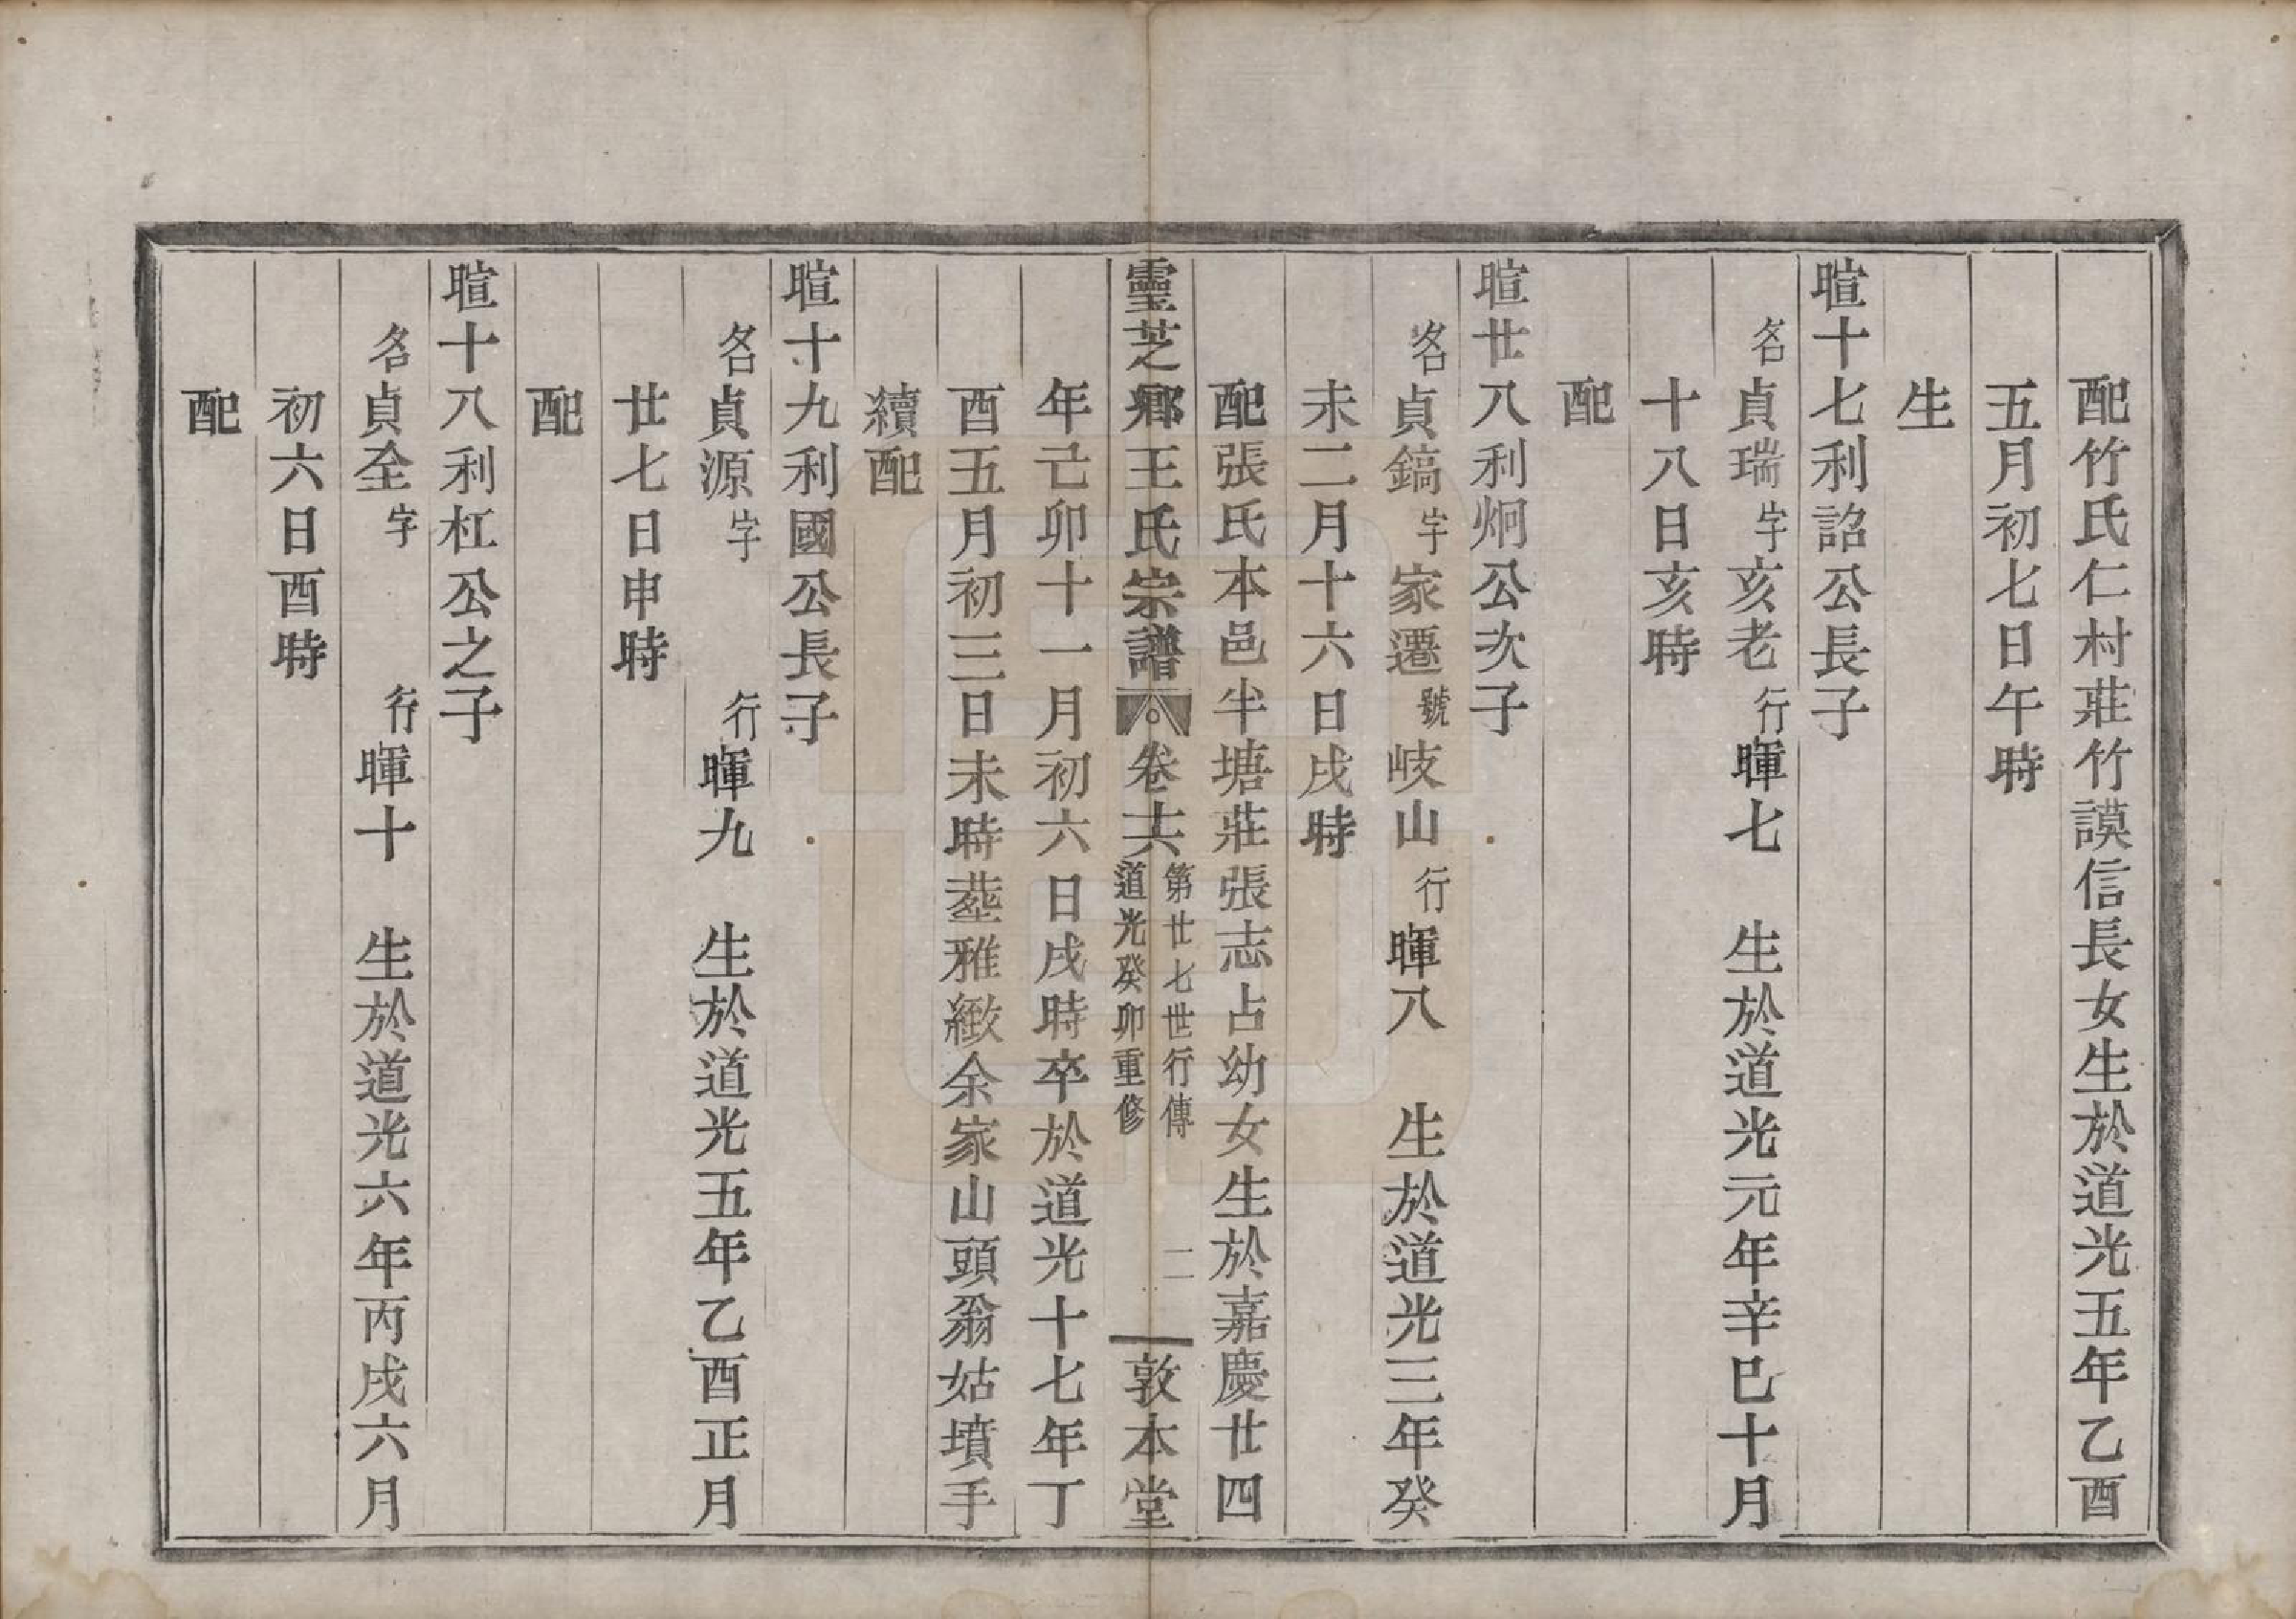 配竹氏仁村莊竹謨信長女生於道光五年乙酉
五月初七日午時
生
暄十七利詔公長子
名貞瑞字亥老行暉七　生於道光元年辛巳十月
十八日亥時
配
暄廿八利炯公次子
名貞鎬字家遷號岐山行暉八　生於道光三年癸
未二月十六日戌時
配張氏本邑半塘莊張志占幼女生於嘉慶廿四
靈芝鄉王氏宗譜　卷十六　第廿七世行傳　道光癸卯重修　二　敦本堂
年己卯十一月初六日戌時卒於道光十七年丁
酉五月初三日未時塟雅緻余家山頭翁姑墳手
續配
暄十九利國公長子
名貞源字　行暉九　生於道光五年乙酉正月
廿七日申時
配
暄十八利杠公之子
名貞全字　行暉十　生於道光六年丙戌六月
初六日酉時
配